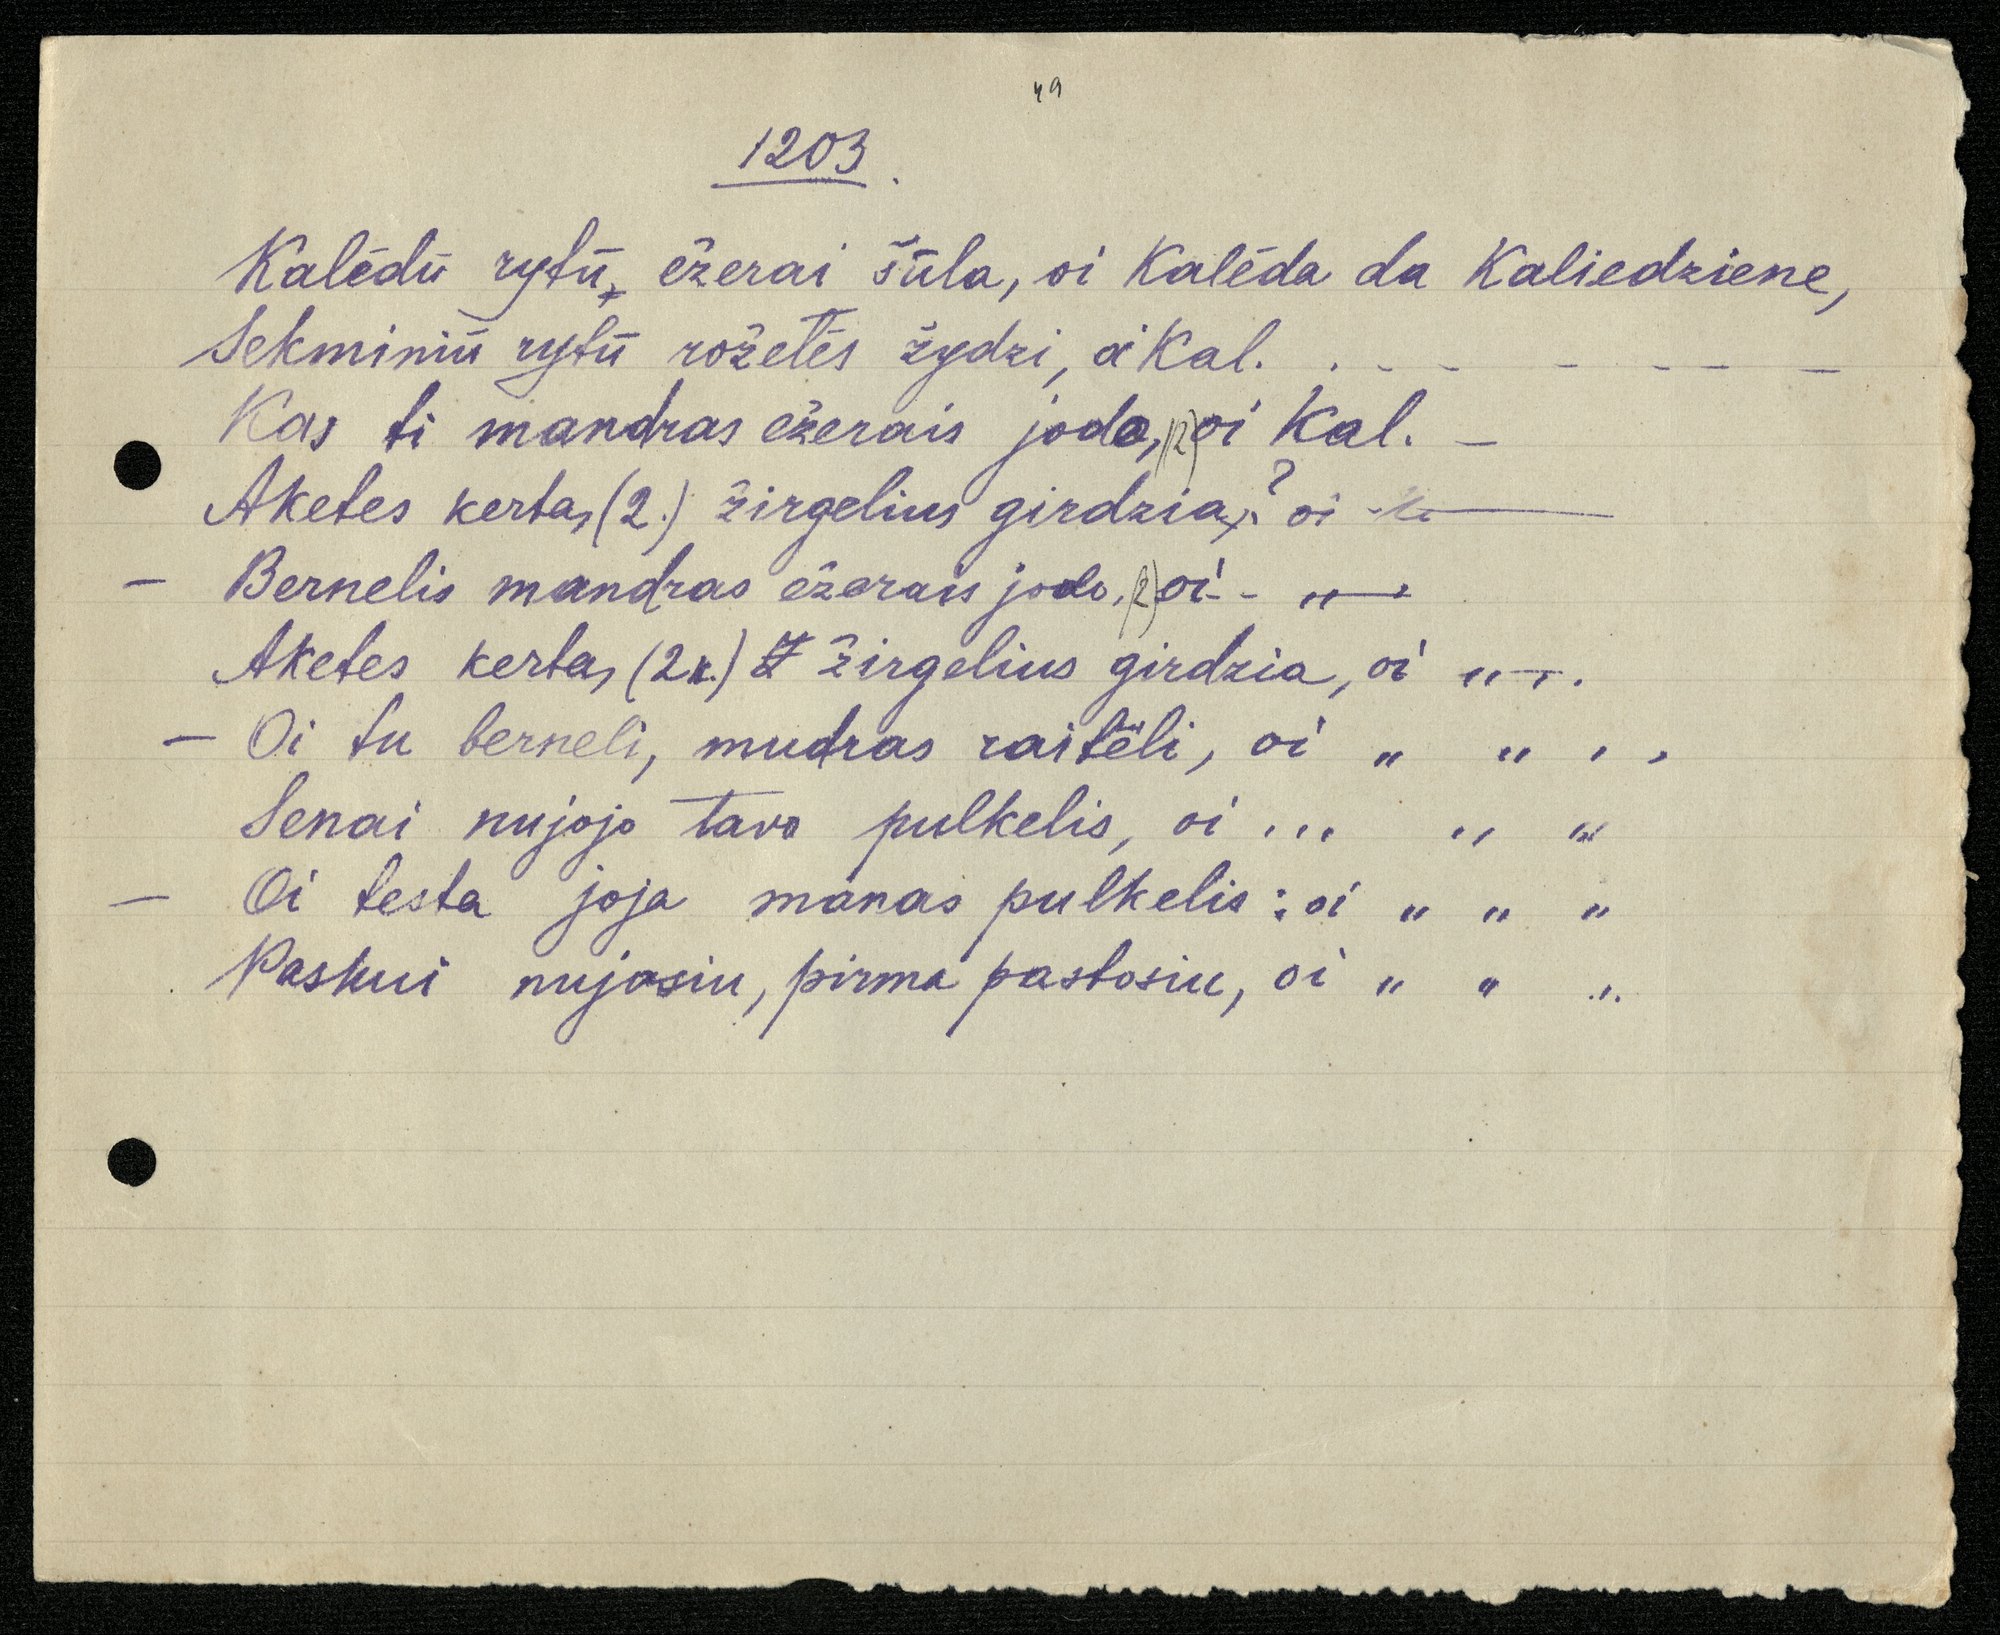 49
1203.
Kalėdū rytū, ežerai šūla, oi Kalėda da Kaliedziene,
Sekminiū rytū rožetės žydzi, oi Kal. . - - - - - -
Kas ti mandras ežerais jodo, (2) oi Kal. -
Aketes kerta, (2.) žirgelius girdzia,? oi
- Bernelis mandras ežerais jodo, (2) oi - - „ —
Aketes kerta, (2k.) žirgelius girdzia, oi „ —.
- Oi tu berneli, mudras raitėli, oi „ „ , ,
Senai nujojo tavo pulkelis, oi ... „ „
- Oi testa joja manas pulkelis: oi „ „ „
Paskui nujosiu, pirma pastosiu, oi „ „ „.